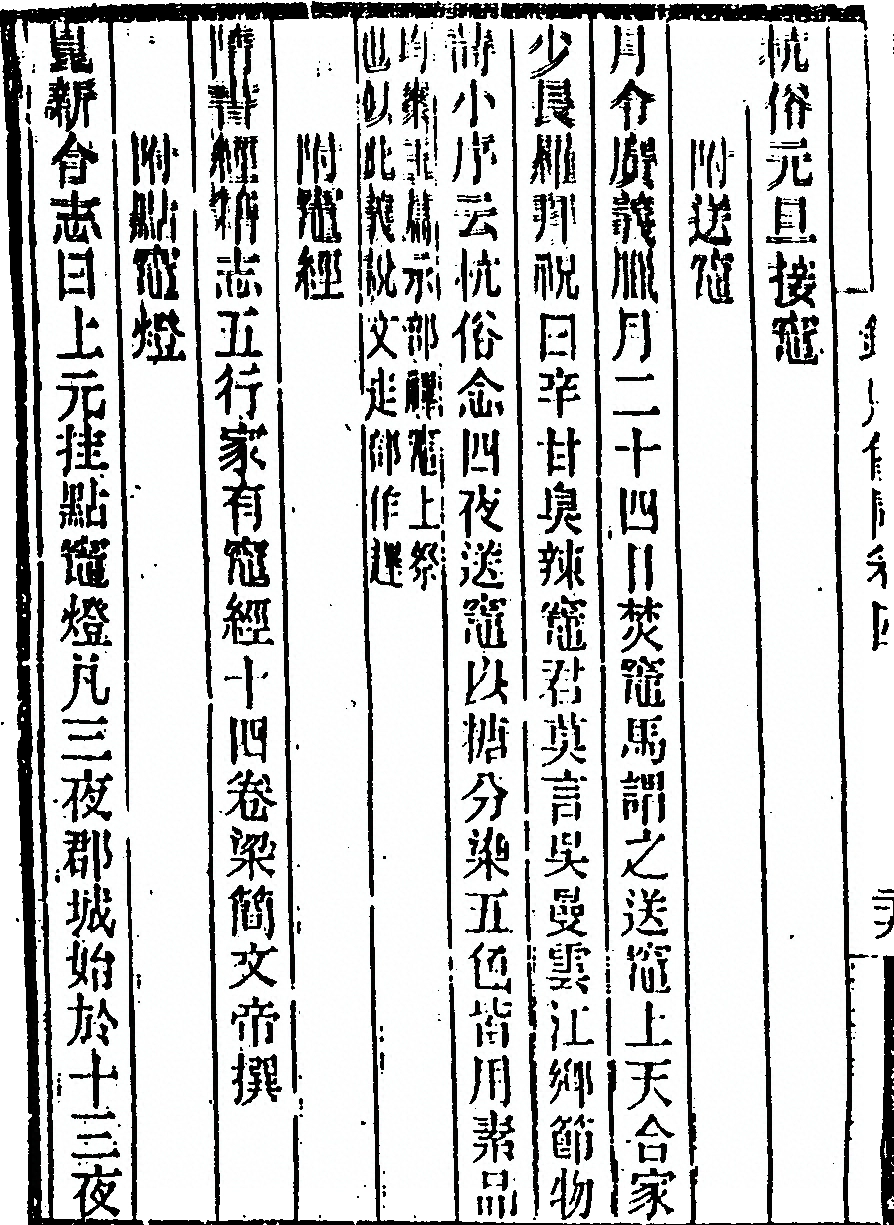 杭俗元旦接竈
附送竈
月令廣義臘月二十四日焚竈馬謂之送竈上天合家
少長羅拜祝曰辛甘臭辣竈君莫言吳曼雲江鄉節物
詩小序云杭俗念四夜送竈以糖分染五色皆用素品
均案玉篇示部禷竈上祭
也似此義說文走部作趩
附竈經
隋書經籍志五行家有竈經十四卷梁簡文帝撰
附點竈燈
嘉新合志曰上元挂點竈燈凡三夜郡城始於十三夜